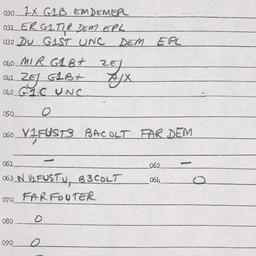 030 1X G1B EMDEMEPL
031 ER G1TIP DEM EPL
032 DU G1ST UNC DEM EPL
040 MIR G1B+ ZEJ
041 ZEJ G1B+ AJX
042 G1C UNC
050 O
060 V1FUST3 BACOLT FAR DEM
061 — 062 —
063 N V1FUSTU, B3COLT 064 O
070 FARFOUTER
080 O
090 O